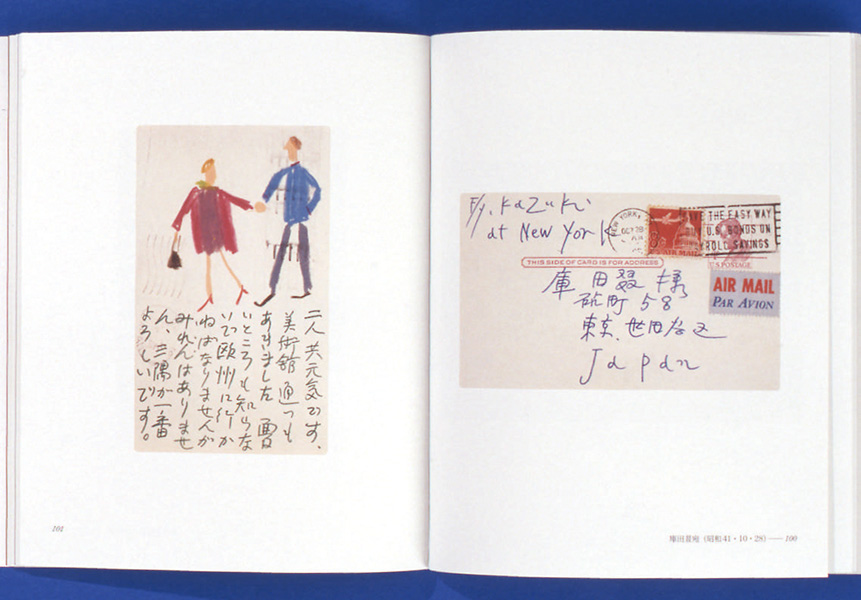 Fr. Kazuki
at New York
NEW YORK
OCT 28
THE EASY WAY
U.S. BONDS ON
ROLL SAVINGS
8¢
AIR MAIL
U.S. POSTAGE
THIS SIDE OF CARD IS FOR ADDRESS
AIR MAIL
PAR AVION
庫田叕様
砧町58
東京.世田谷区
Japan
庫田叕宛（昭和41・10・28）── 100
二人共元気です、
美術館通ひも
あきました 面
いところも知らな
いで欧州に行か
ねばなりませんが
みれんはありませ
ん、三隅が一番
よろしいです。
101